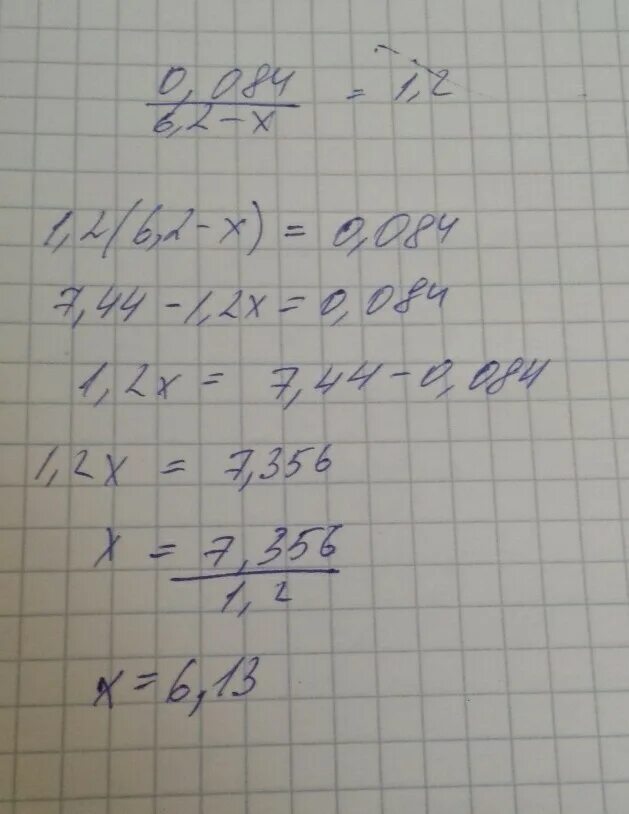 0,084 / 6,2-x = 1,2
1,2(6,2-x) = 0,084
7,44-1,2x=0,084
1,2x = 7,44-0,084
1,2x = 7,356
x = 7,356 / 1,2
x=6,13